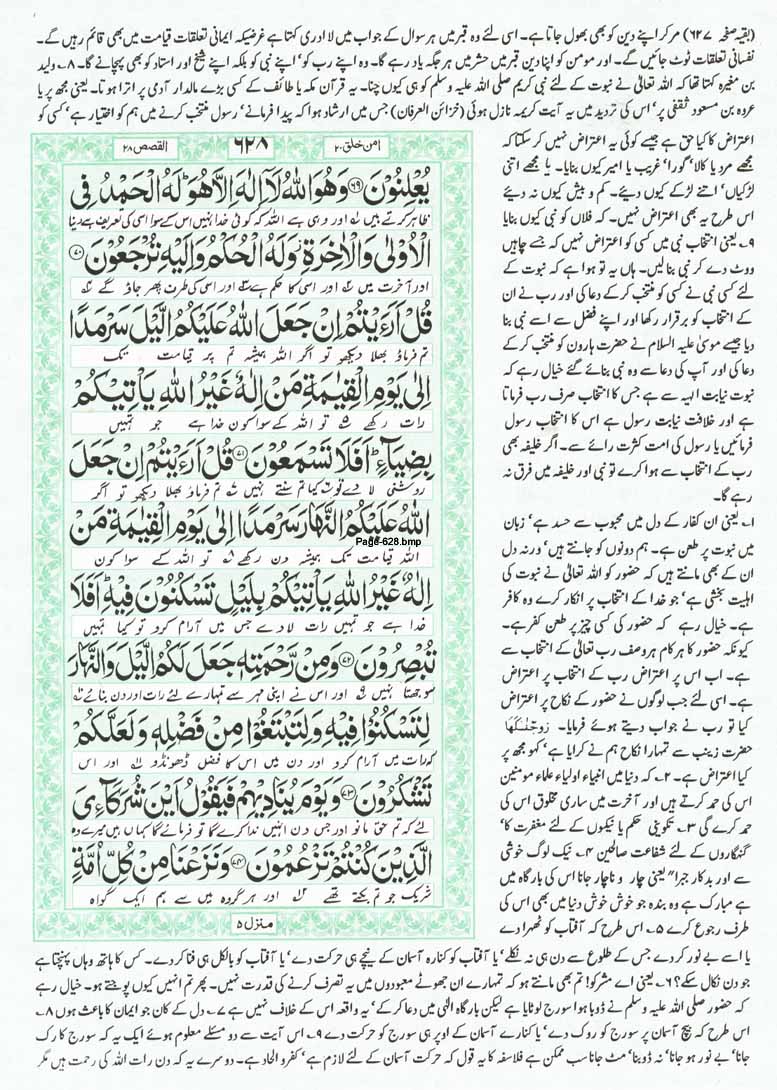 (بقیہ صفحہ ۶۲۷) مر کر اپنے دین کو بھی بھول جاتا ہے۔ اسی لئے وہ قبر میں ہر سوال کے جواب میں لا ادری کہتا ہے غرضیکہ ایمانی تعلقات قیامت میں بھی قائم رہیں گے۔
نفسانی تعلقات ٹوٹ جائیں گے۔ اور مومن کو اپنا دین قبر میں حشر میں ہر جگہ یاد رہے گا۔ وہ اپنے رب کو' اپنے نبی کو بلکہ اپنے شیخ اور استاد کو بھی پہچانے گا۔ ۸۔ ولید
بن مغیرہ کہتا تھا کہ اللہ تعالٰی نے نبوت کے لئے نبی کریم صلی اللہ علیہ وسلم کو ہی کیوں چنا۔ یہ قرآن مکہ یا طائف کے کسی بڑے مالدار آدمی پر اترا ہوتا۔ یعنی مجھ پر یا
عروہ بن مسعود ثقفی پر' اس کی تردید میں یہ آیت کریمہ نازل ہوئی (خزائن العرفان) جس میں ارشاد ہوا کہ پیدا فرمانے' رسول منتخب کرنے میں ہم کو اختیار ہے' کسی کو
اعتراض کا کیا حق ہے جیسے کوئی یہ اعتراض نہیں کر سکتا کہ
مجھے مرد یا کالا' گورا' غریب یا امیر کیوں بنایا۔ یا مجھے اتنی
لڑکیاں' اتنے لڑکے کیوں دیئے۔ کم و بیش کیوں نہ دیئے
اس طرح یہ بھی اعتراض نہیں۔ کہ فلاں کو نبی کیوں بنایا
۹۔ یعنی انتخاب نبی میں کسی کو اعتراض نہیں کہ جسے چاہیں
ووٹ دے کر نبی بنالیں۔ ہاں یہ تو ہوا ہے کہ نبوت کے
لئے کسی نبی نے کسی کو منتخب کرکے دعا کی اور رب نے ان
کے انتخاب کو برقرار رکھا اور اپنے فضل سے اسے نبی بنا
دیا جیسے موسیٰ علیہ السلام نے حضرت ہارون کو منتخب کرکے
دعا کی اور آپ کی دعا سے وہ نبی بنائے گئے خیال رہے کہ
نبوت نیابت الٰہیہ سے ہے جس کا انتخاب صرف رب فرماتا
ہے اور خلافت نیابت رسول ہے اس کا انتخاب رسول
فرمائیں یا رسول کی امت کثرت رائے سے۔ اگر خلیفہ بھی
رب کے انتخاب سے ہوا کرے تو نبی اور خلیفہ میں فرق نہ
رہے گا۔
۱۔ یعنی ان کفار کے دل میں محبوب سے حسد ہے' زبان
میں نبوت پر طعن ہے۔ ہم دونوں کو جانتے ہیں' ورنہ دل
ان کے بھی مانتے ہیں کہ حضور کو اللہ تعالٰی نے نبوت کی
اہلیت بخشی ہے' جو خدا کے انتخاب پر انکار کرے وہ کافر
ہے۔ خیال رہے کہ حضور کی کسی چیز پر طعن کفر ہے۔
کیونکہ حضور کا ہر کام ہر وصف رب تعالٰی کے انتخاب سے
ہے۔ اب اس پر اعتراض رب کے انتخاب پر اعتراض
ہے۔ اسی لئے جب لوگوں نے حضور کے نکاح پر اعتراض
کیا تو رب نے جواب دیتے ہوئے فرمایا۔ زَوَّجْنٰكَهَا
حضرت زینب سے تمہارا نکاح ہم نے کرایا ہے' کہو مجھ پر
کیا اعتراض ہے۔ ۲۔ کہ دنیا میں انبیاء اولیاء علماء مومنین
اس کی حمد کرتے ہیں اور آخرت میں ساری مخلوق اس کی
حمد کرے گی ۳۔ تکوینی حکم یا نیکوں کے لئے مغفرت کا'
گنہگاروں کے لئے شفاعت صالحین ۴۔ نیک لوگ خوشی
سے اور بدکار جبراً" یعنی چار و ناچار جانا اس کی بارگاہ میں
ہے مبارک ہے وہ بندہ جو خوش خوش دنیا میں بھی اس کی
طرف رجوع کرے ۵۔ اس طرح کہ آفتاب کو ٹھہرا دے
امن خلق ۲۰
۶۲۸
القصص ۲۸
يُعْلِنُوْنَ ﴿۶۹﴾ وَهُوَ اللّٰهُ لَآ اِلٰهَ اِلَّا هُوَ ۭ لَهُ الْحَمْدُ فِى
ظاہر کرتے ہیں اور وہی ہے اللہ کہ کوئی خدا نہیں اس کے سوا اسی کی تعریف ہے دنیا
الْاُوْلٰى وَالْاٰخِرَةِ ۡ وَلَهُ الْحُكْمُ وَاِلَيْهِ تُرْجَعُوْنَ ﴿۷۰﴾
اور آخرت میں اور اسی کا حکم ہے اور اسی کی طرف پھر جاؤ گے
قُلْ اَرَءَيْتُمْ اِنْ جَعَلَ اللّٰهُ عَلَيْكُمُ الَّيْلَ سَرْمَدًا
تم فرماؤ بھلا دیکھو تو اگر اللہ ہمیشہ تم پر قیامت تک
اِلٰى يَوْمِ الْقِيٰمَةِ مَنْ اِلٰهٌ غَيْرُ اللّٰهِ يَاْتِيْكُمْ
رات رکھے تو اللہ کے سوا کون خدا ہے جو تمہیں
بِضِيَآءٍ ۭ اَفَلَا تَسْمَعُوْنَ ﴿۷۱﴾ قُلْ اَرَءَيْتُمْ اِنْ جَعَلَ
روشنی لا دے تو کیا تم سنتے نہیں تم فرماؤ بھلا دیکھو تو اگر
اللّٰهُ عَلَيْكُمُ النَّهَارَ سَرْمَدًا اِلٰى يَوْمِ الْقِيٰمَةِ مَنْ
Page-628.bmp
اللہ قیامت تک ہمیشہ دن رکھے تو اللہ کے سوا کون
اِلٰهٌ غَيْرُ اللّٰهِ يَاْتِيْكُمْ بِلَيْلٍ تَسْكُنُوْنَ فِيْهِ ۭ اَفَلَا
خدا ہے جو تمہیں رات لا دے جس میں آرام کرو تو کیا تمہیں
تُبْصِرُوْنَ ﴿۷۲﴾ وَمِنْ رَّحْمَتِهٖ جَعَلَ لَكُمُ الَّيْلَ وَالنَّهَارَ
سوجھتا نہیں اور اس نے اپنی مہر سے تمہارے لئے رات اور دن بنائے
لِتَسْكُنُوْا فِيْهِ وَلِتَبْتَغُوْا مِنْ فَضْلِهٖ وَلَعَلَّكُمْ
کہ رات میں آرام کرو اور دن میں اس کا فضل ڈھونڈو اور اس
تَشْكُرُوْنَ ﴿۷۳﴾ وَيَوْمَ يُنَادِيْهِمْ فَيَقُوْلُ اَيْنَ شُرَكَآءِىَ
لئے کہ تم حق مانو اور جس دن انہیں ندا کرے گا تو فرمائے گا کہاں ہیں میرے وہ
الَّذِيْنَ كُنْتُمْ تَزْعُمُوْنَ ﴿۷۴﴾ وَنَزَعْنَا مِنْ كُلِّ اُمَّةٍ
شریک جو تم بکتے تھے اور ہر گروہ میں سے ہم ایک گواہ
منزل ۵
یا اسے بے نور کر دے جس کے طلوع سے دن ہی نہ نکلے' یا آفتاب کو کنارہ آسمان کے نیچے ہی حرکت دے' یا آفتاب کو بالکل ہی فنا کر دے۔ کس کا ہاتھ وہاں پہنچتا ہے
جو دن نکال سکے؟ ۶۔ یعنی اے مشرکو! تم بھی مانتے ہو کہ تمہارے ان جھوٹے معبودوں میں یہ تصرف کرنے کی قدرت نہیں۔ پھر تم انہیں کیوں پوجتے ہو۔ خیال رہے
کہ حضور صلی اللہ علیہ وسلم نے ڈوبا ہوا سورج لوٹایا ہے لیکن بارگاہ الٰہی میں دعا کرکے' یہ واقعہ اس کے خلاف نہیں ہے ۷۔ دل کے کان جو ایمان کا باعث ہوں ۸۔
اس طرح کہ بیچ آسمان پر سورج کو روک دے' یا کنارے آسمان کے اوپر ہی سورج کو حرکت دے ۹۔ اس آیت سے دو مسئلے معلوم ہوئے ایک یہ کہ سورج کا رک
جانا' بے نور ہو جانا' نہ ڈوبنا' مٹ جانا سب ممکن ہے فلاسفہ کا یہ قول کہ حرکت آسمان کے لئے لازم ہے' کفر و الحاد ہے۔ دوسرے یہ کہ دن رات اللہ کی رحمت ہیں مگر